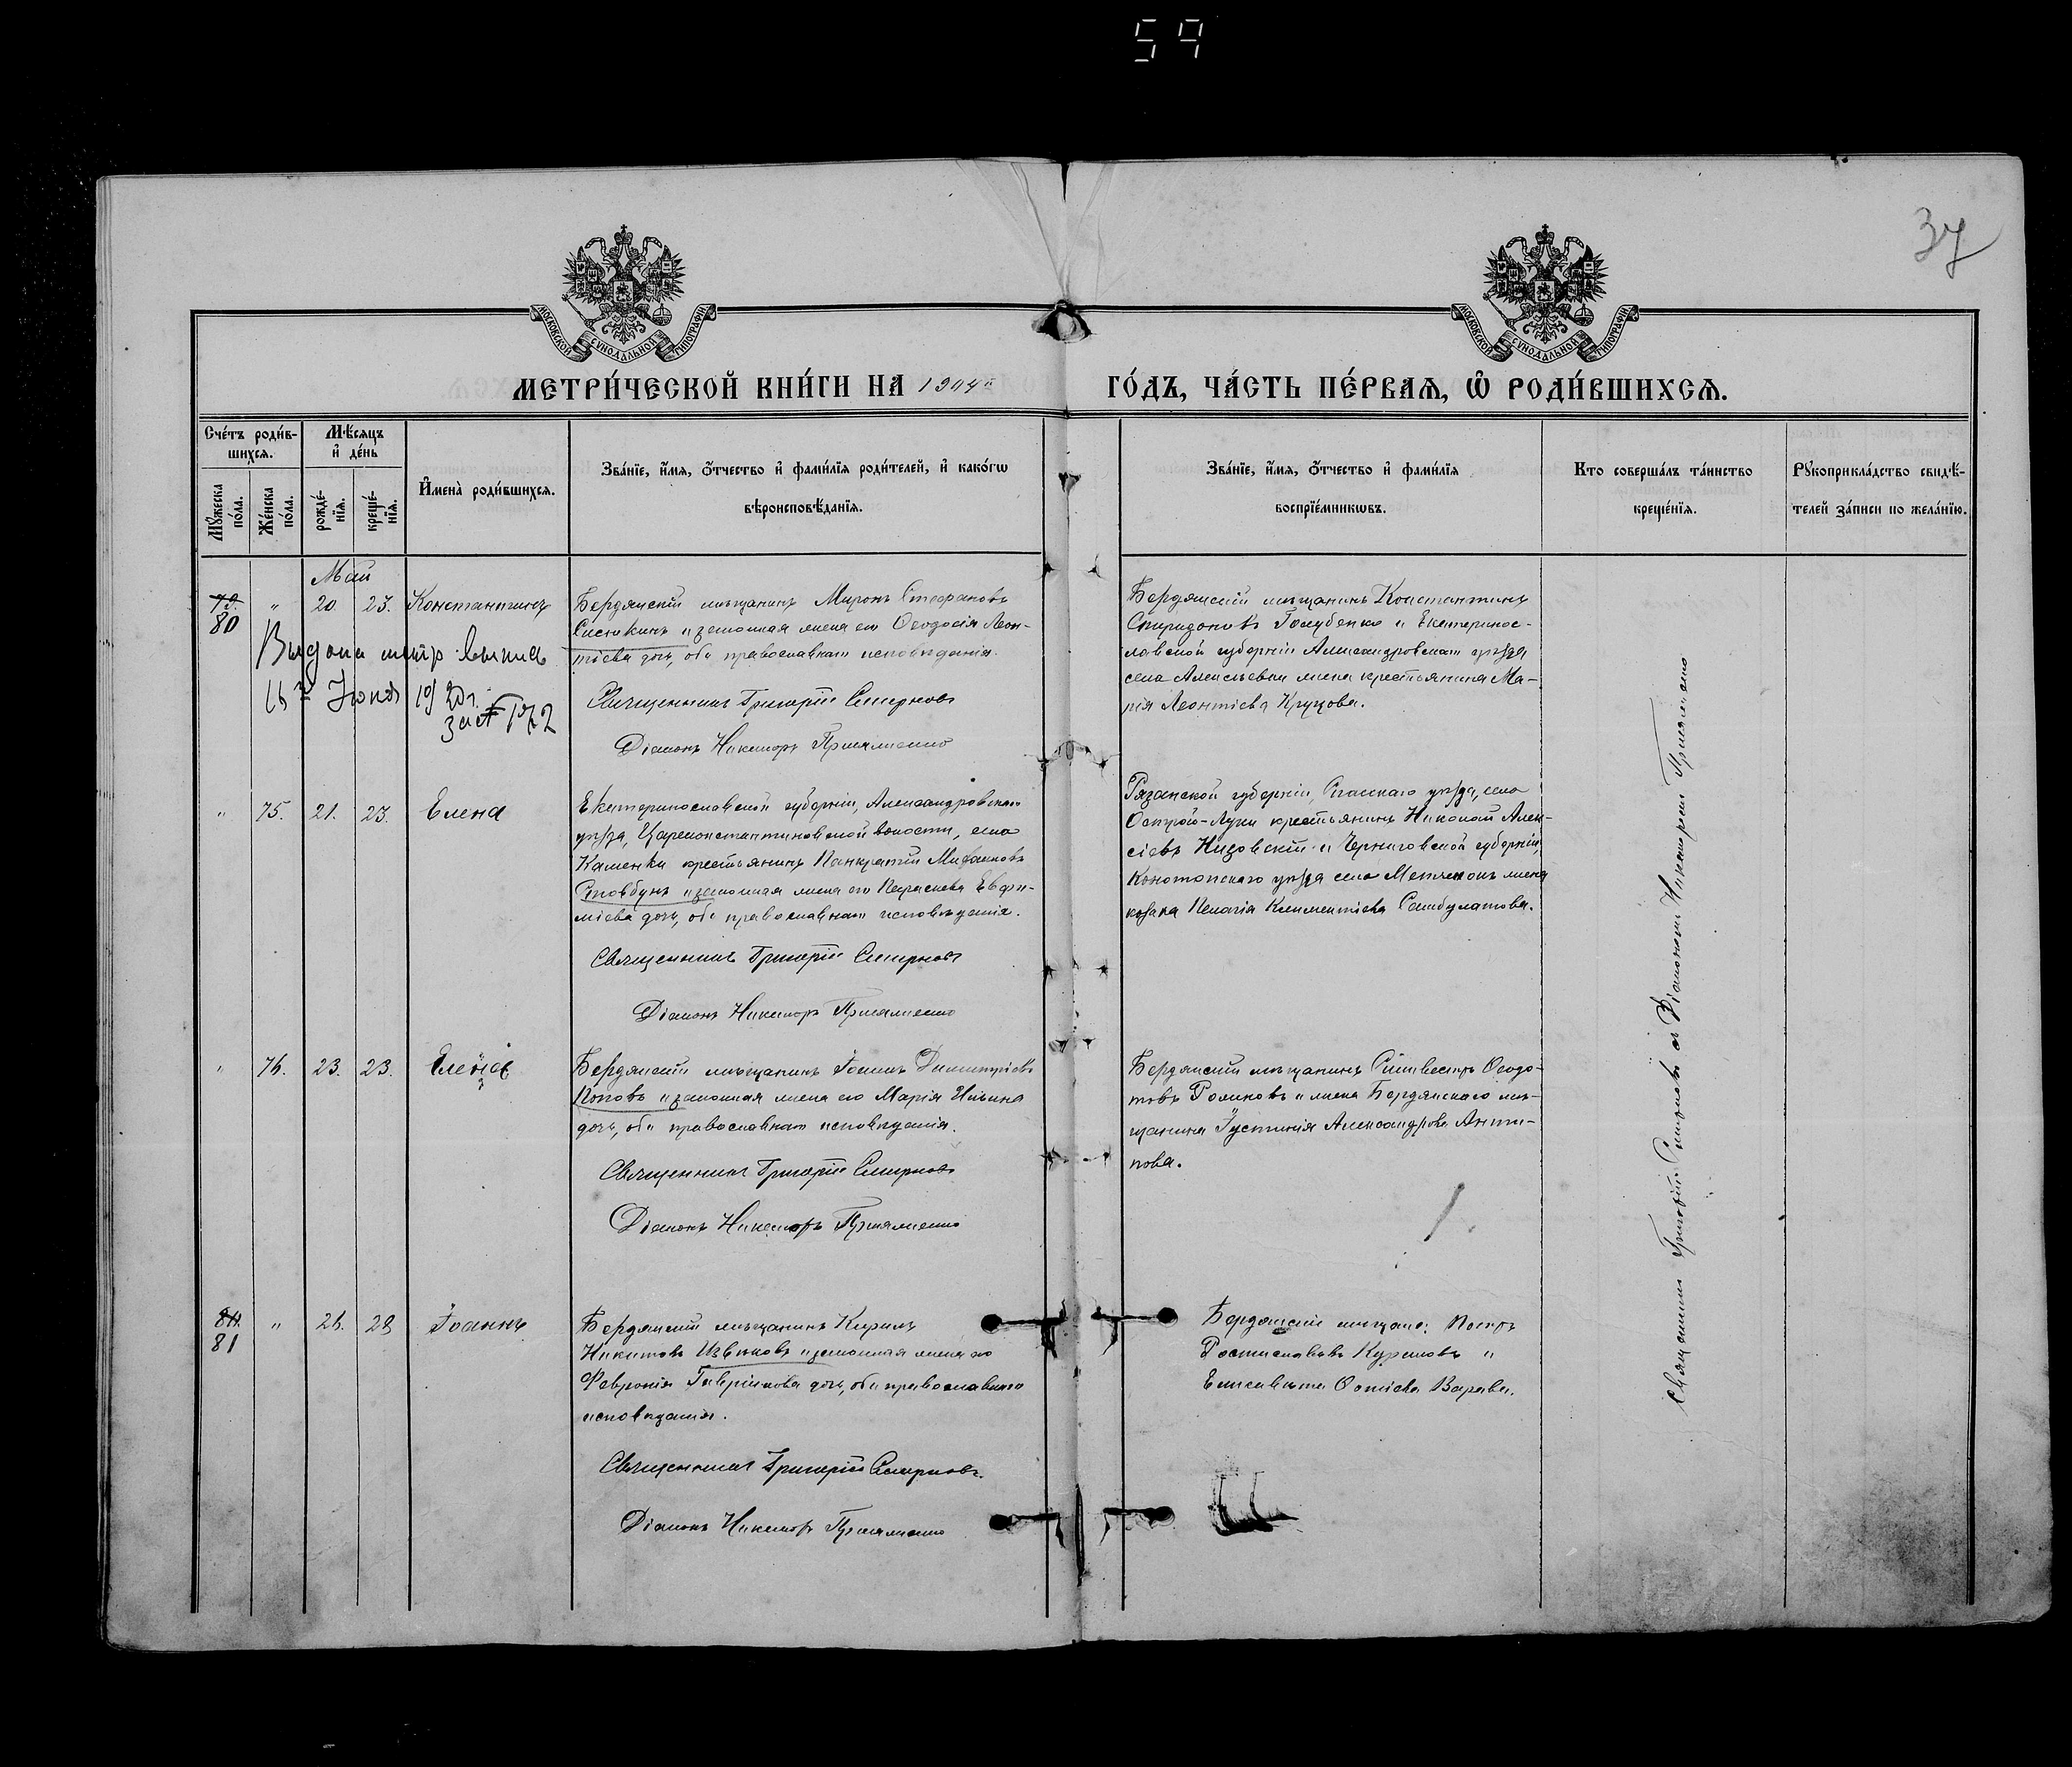 59
37
МОСКОВСКОЙ СѴНОДАЛЬНОЙ ТИПОГРАФІИ
МОСКОВСКОЙ СѴНОДАЛЬНОЙ ТИПОГРАФІИ
МЕТРИ́ЧЕСКОЙ КНИ́ГИ НА 1904й
ГО́ДЪ, ЧА́СТЬ ПЕ́РВАѦ, Ѽ РОДИ́ВШИХСѦ.
Сче́тъ роди́в-
шихсѧ.
Мꙋ́жеска по́ла.
Же́нска по́ла.
Мѣ́сяцъ
и҆ де́нь
рожде́-
нїѧ.
креще́-
нїѧ.
И҆мена̀ роди́вшихсѧ.
Зва́нїе, и҆́мѧ, ѻ҆́тчество и҆ фами́лїѧ роди́телей, и҆ како́гѡ
вѣроисповѣ́данїѧ.
Зва́нїе, и҆́мѧ, ѻ҆́тчество и҆ фами́лїѧ
воспрїе́мникѡвъ.
Кто соверша́лъ та́инство
креще́нїѧ.
Рꙋкоприкла́дство свидѣ́-
телей за́писи по жела́нїю.
Май
79.
80
"
20.
23.
Константинъ
Бердянскій мѣщанинъ Миронъ Стефановъ
и законная жена его Ѳеодосія Леон-
тіева дочь, оба православнаго исповѣданія.
Священникъ Григорій Смирновъ
Діаконъ Никаноръ
Выдана метр. выпись
16го Іюня 1920г.
за № 172
Бердянскій мѣщанинъ Константинъ
Спиридоновъ Голубенко и Екатеринос-
лавской губерніи Александровскаго уѣзда
села Алексѣевки жена крестьянина Ма-
рія Леонтіева Круцова.
"
75.
21.
23.
Елена
Екатеринославской губерніи, Александровскаго
уѣзда, Цареконстантиновской волости, села
Каменки крестьянинъ Панкратій Михаиловъ
Стовбунъ и законная жена его Параскева Евфи-
міева дочь, оба православнаго исповѣданія.
Священникъ Григорій Смирновъ
Діаконъ Никаноръ
Рязанской губерніи, Спасскаго уѣзда, села
Острой-Луки крестьянинъ Николай Алек-
сіевъ Низовскій и Черниговской губерніи,
Конотопскаго уѣзда села жена
козака Пелагія Климентіева Самбулатова.
"
76.
23.
23.
Бердянскій мѣщанинъ Іоаннъ Димитріевъ
Поповъ и законная жена его Марія Ильина
дочь, оба православнаго исповѣданія.
Священникъ Григорій Смирновъ
Діаконъ Никаноръ
Бердянскій мѣщанинъ Сильвестръ Ѳеодо-
товъ и жена Бердянскаго мѣ-
щанина Іустинія Александрова Анти-
пова.
80.
81
"
26.
28
Іоаннъ
Бердянскій мѣщанинъ Кириллъ
Никитовъ Извѣковъ и законная жена его
Февронія Гавріилова дочь, оба православнаго
исповѣданія.
Священникъ Григорій Смирновъ.
Діаконъ Никаноръ
Бердянскіе мѣщане: Петръ
Ростиславовъ Куриловъ и
Елисавета Варава.
Священникъ Григорій Смирновъ съ Діакономъ Никаноромъ